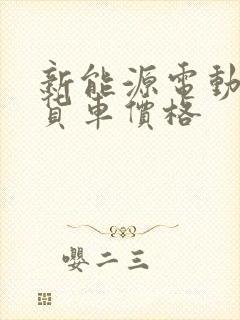 新能源電動
貨車價格
嬰二三